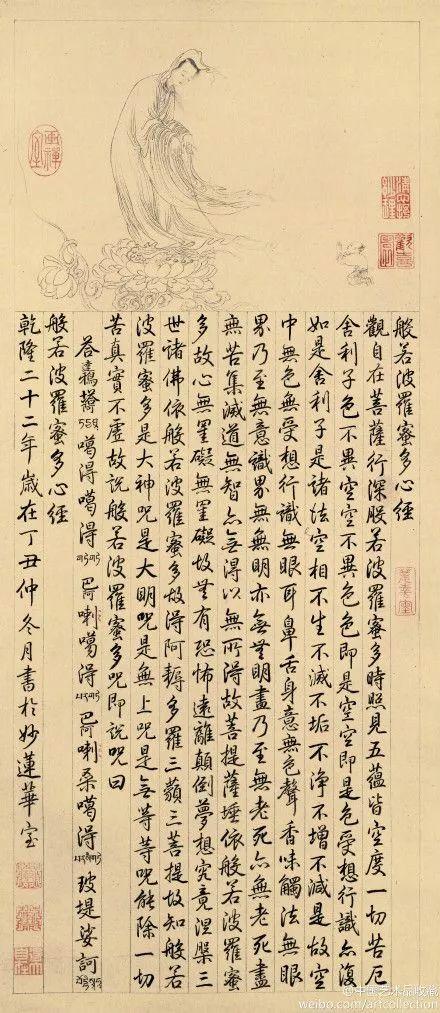 畫禪室
般若波羅蜜多心經
觀自在菩薩行深般若波羅蜜多時照見五蘊皆空度一切苦厄
舍利子色不異空空不異色色即是空空即是色受想行識亦復
如是舍利子是諸法空相不生不滅不垢不淨不增不減是故空
中無色無受想行識無眼耳鼻舌身意無色聲香味觸法無眼
界乃至無意識界無無明亦無無明盡乃至無老死亦無老死盡
無苦集滅道無智亦無得以無所得故菩提薩埵依般若波羅蜜
多故心無罣礙無罣礙故無有恐怖遠離顛倒夢想究竟涅槃三
世諸佛依般若波羅蜜多故得阿耨多羅三藐三菩提故知般若
波羅蜜多是大神咒是大明咒是無上咒是無等等咒能除一切
苦真實不虛故說般若波羅蜜多咒即說咒曰
噶得噶得巴阿喇噶得巴阿喇桑噶得玻堤娑訶
般若波羅蜜多心經
乾隆二十二年歲在丁丑仲冬月書於妙蓮華室
@中国艺术品收藏
weibo.com/artcollection